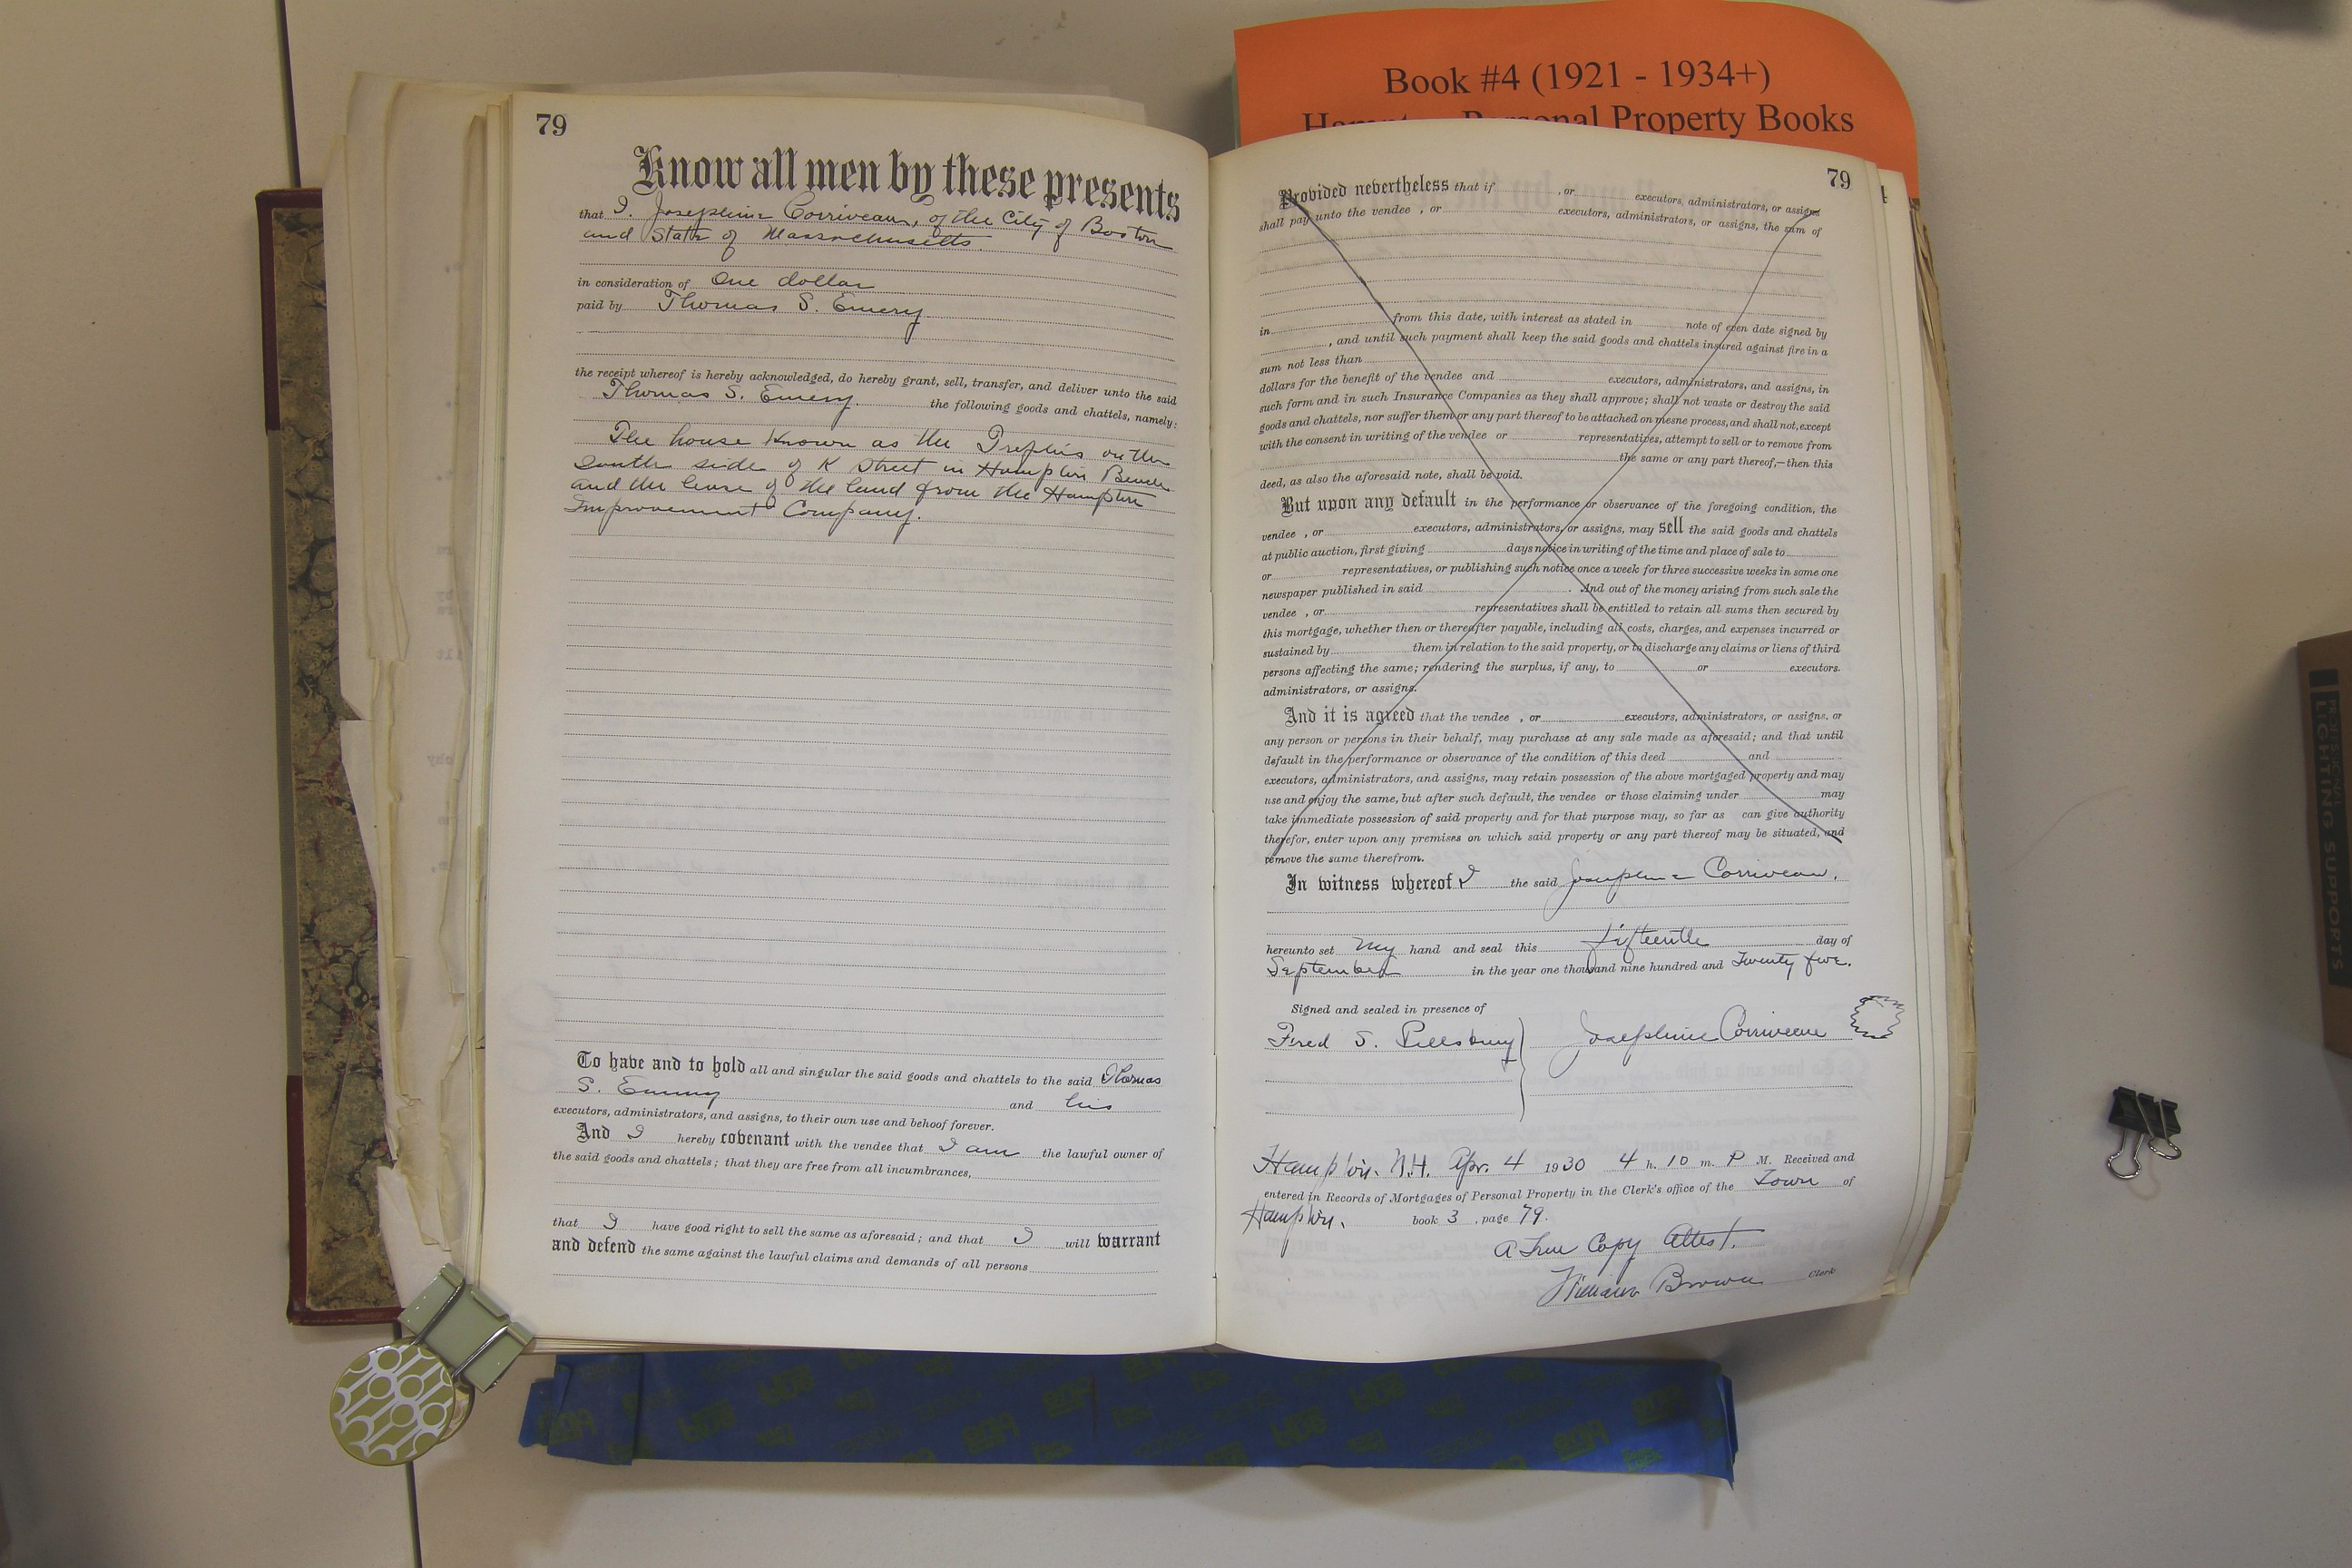 Book #4 (1921 - 1934+)
Personal Property Books
79
Know all men by these presents
that I, Josephine Corriveau, of the City of Boston
and State of Massachusetts.
in consideration of One dollar
paid by Thomas S. Emery
the receipt whereof is hereby acknowledged, do hereby grant, sell, transfer, and deliver unto the said
Thomas S. Emery. the following goods and chattels, namely:
The house known as the on the
South side of K Street in Hampton Beach
and the lease of the land from the Hampton
Improvement Company.
To have and to hold all and singular the said goods and chattels to the said Thomas
S. Emery and his
executors, administrators, and assigns, to their own use and behoof forever.
And I hereby covenant with the vendee that I am the lawful owner of
the said goods and chattels; that they are free from all incumbrances,
that I have good right to sell the same as aforesaid; and that I will warrant
and defend the same against the lawful claims and demands of all persons
79
Provided nevertheless that if , or executors, administrators, or assigns
shall pay unto the vendee , or executors, administrators, or assigns, the sum of
in from this date, with interest as stated in note of even date signed by
, and until such payment shall keep the said goods and chattels insured against fire in a
sum not less than
dollars for the benefit of the vendee and executors, administrators, and assigns, in
such form and in such Insurance Companies as they shall approve; shall not waste or destroy the said
goods and chattels, nor suffer them or any part thereof to be attached on mesne process, and shall not, except
with the consent in writing of the vendee or representatives, attempt to sell or to remove from
the same or any part thereof,—then this
deed, as also the aforesaid note, shall be void.
But upon any default in the performance or observance of the foregoing condition, the
vendee , or executors, administrators, or assigns, may sell the said goods and chattels
at public auction, first giving days notice in writing of the time and place of sale to
or representatives, or publishing such notice once a week for three successive weeks in some one
newspaper published in said . And out of the money arising from such sale the
vendee , or representatives shall be entitled to retain all sums then secured by
this mortgage, whether then or thereafter payable, including all costs, charges, and expenses incurred or
sustained by them in relation to the said property, or to discharge any claims or liens of third
persons affecting the same; rendering the surplus, if any, to or executors.
administrators, or assigns.
And it is agreed that the vendee , or executors, administrators, or assigns, or
any person or persons in their behalf, may purchase at any sale made as aforesaid; and that until
default in the performance or observance of the condition of this deed and
executors, administrators, and assigns, may retain possession of the above mortgaged property and may
use and enjoy the same, but after such default, the vendee or those claiming under may
take immediate possession of said property and for that purpose may, so far as can give authority
therefor, enter upon any premises on which said property or any part thereof may be situated, and
remove the same therefrom.
In witness whereof I the said Josephine Corriveau.
hereunto set my hand and seal this fifteenth day of
September in the year one thousand nine hundred and Twenty five.
Signed and sealed in presence of
Fred S. Pillsbury Josephine Corriveau
Hampton. N.H. Apr. 4 1930 4 h. 10 m. P M. Received and
entered in Records of Mortgages of Personal Property in the Clerk's office of the Town of
Hampton. book 3 , page 79.
A True Copy Attest.
William Brown Clerk
LIGHTING SUPPORTS